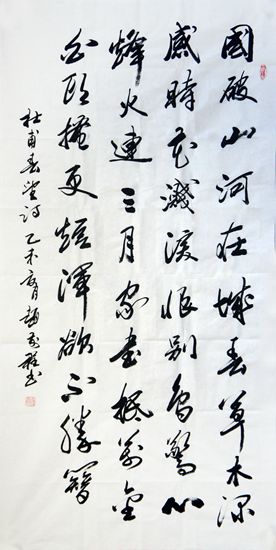 國破山河在城春草木深
感時花濺淚恨別鳥驚心
烽火連三月家書抵萬金
白頭搔更短渾欲不勝簪
杜甫春望詩乙未書